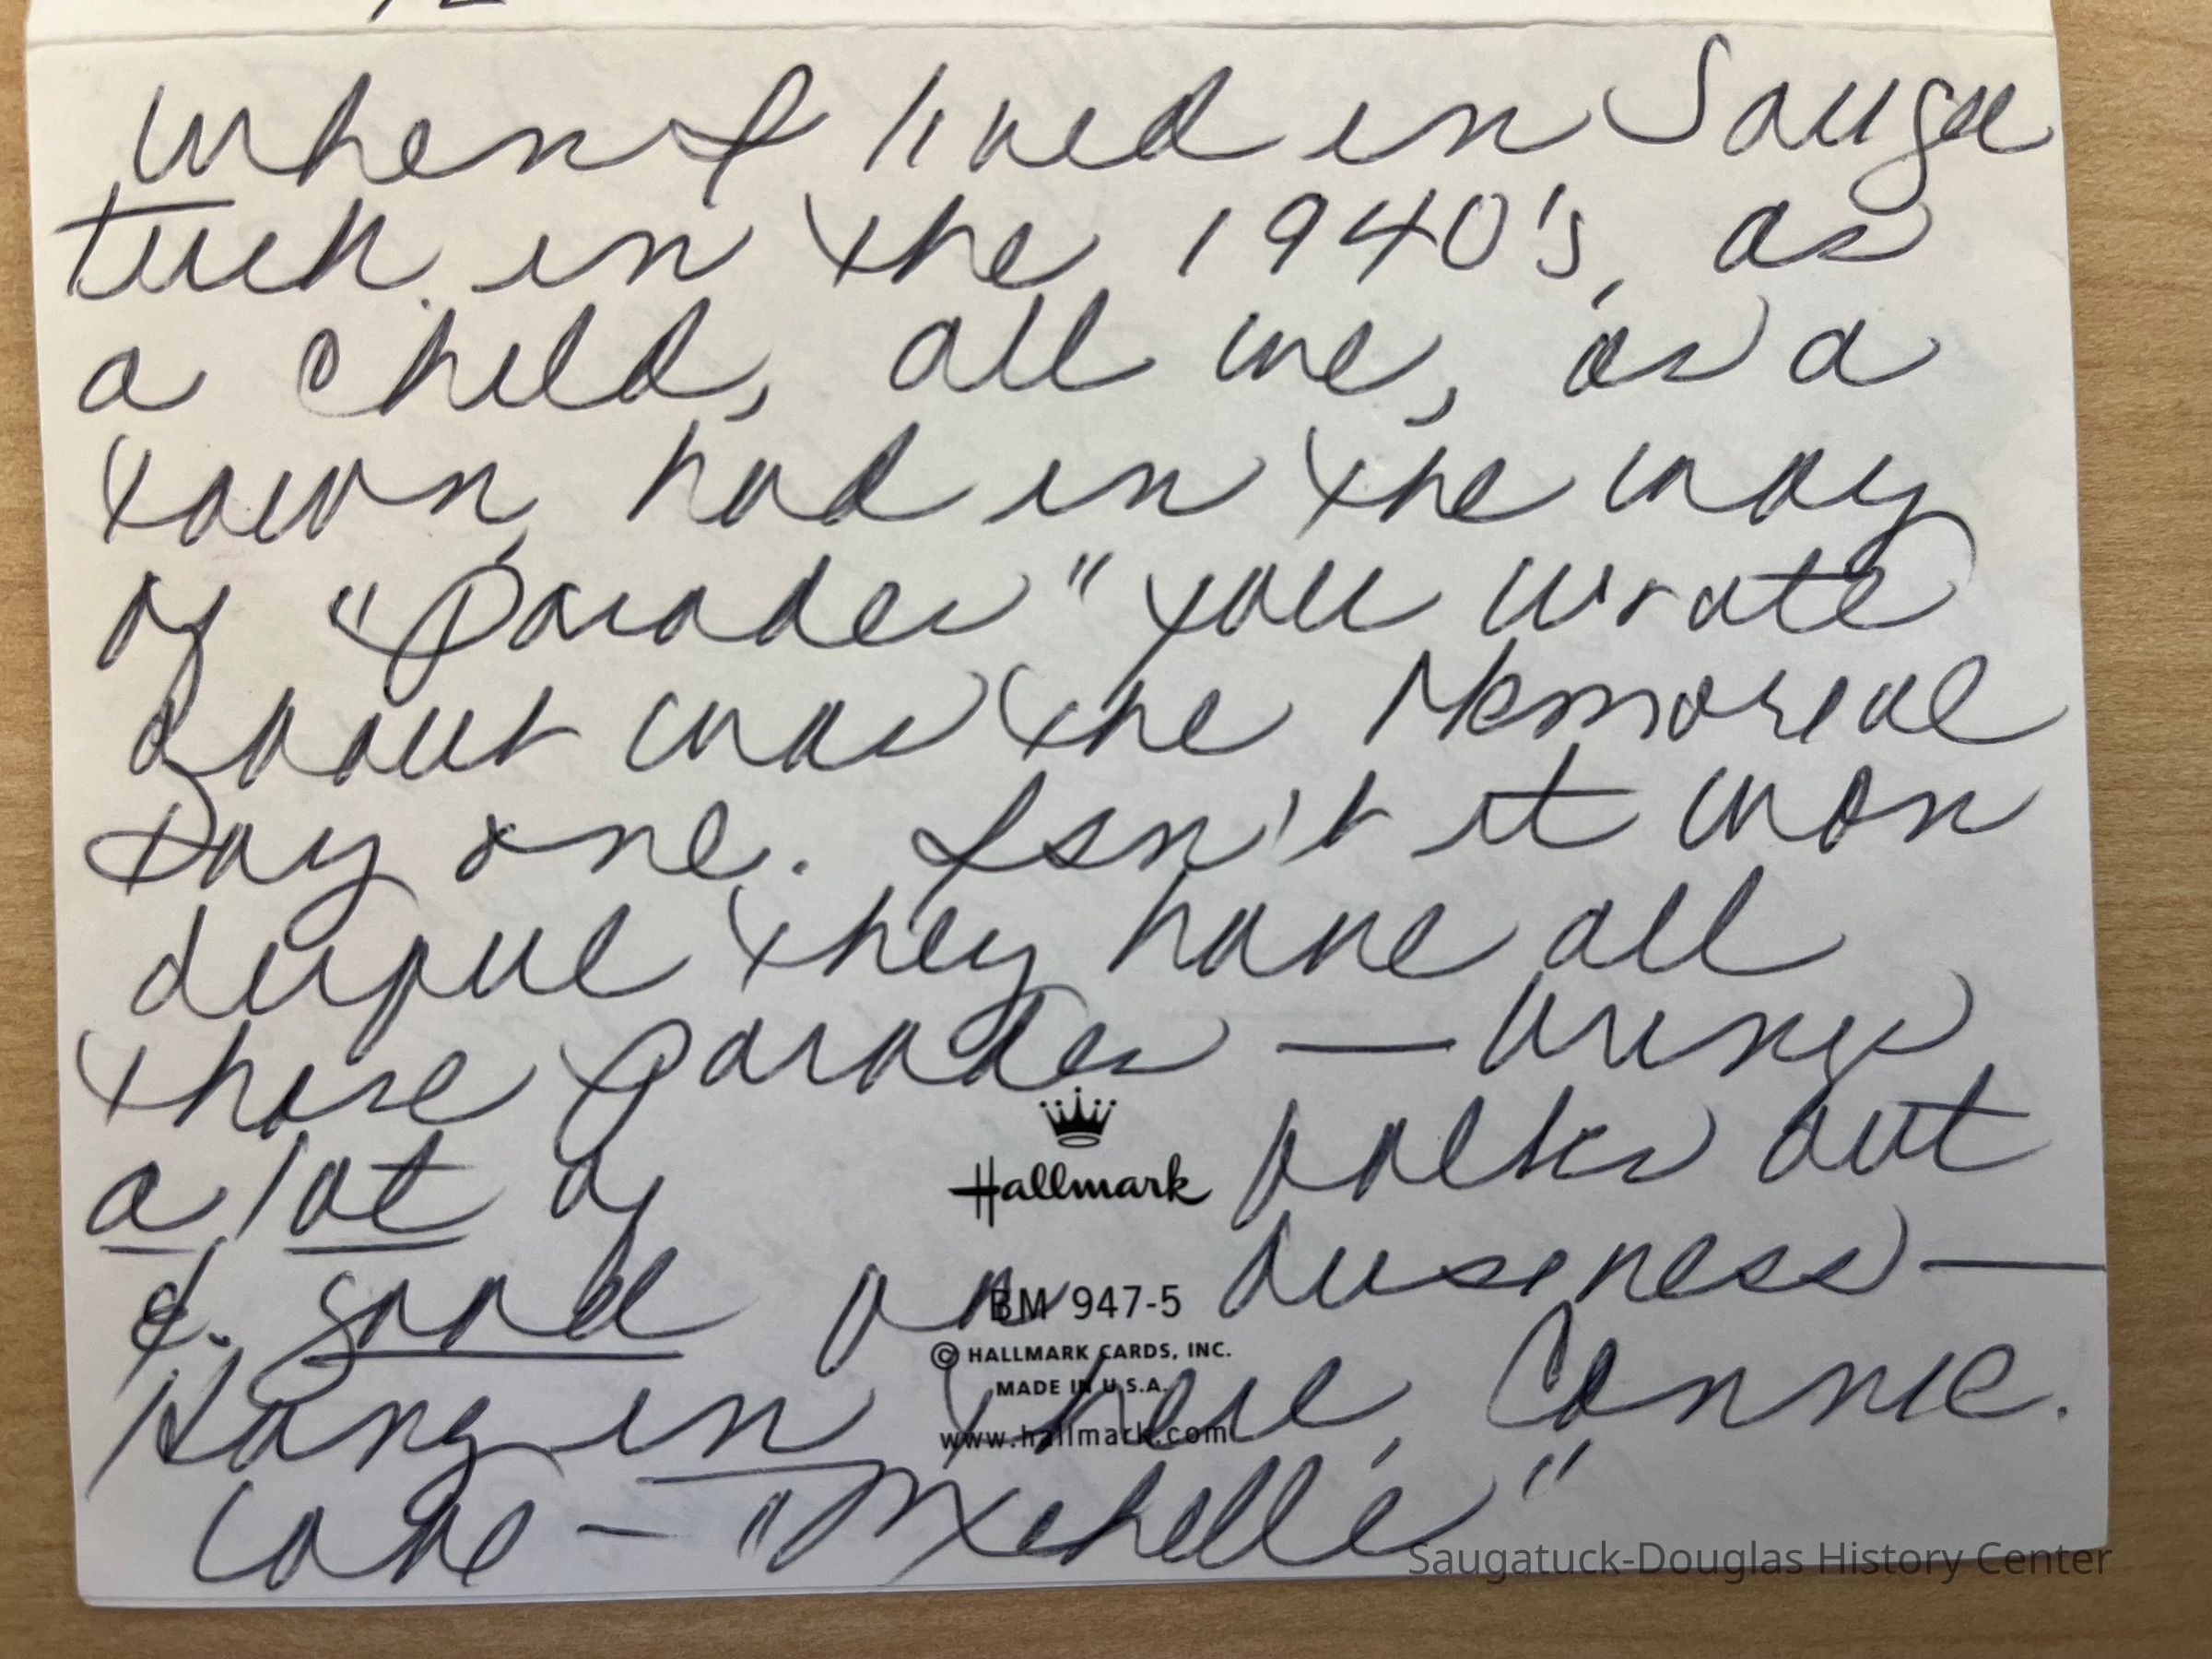 When I lived in Sauga
tuck in the 1940's, as
a child, all we, as a
town, had in the way
of "Parades" you wrote
about was the Memorial
Day one. Isn't it won
derful they have all
those parades — brings
a lot of folks out
&. good for business —
Hang in there, Connie.
Love — "Michelle"
Hallmark
BM 947-5
© HALLMARK CARDS, INC.
MADE IN U.S.A.
www.hallmark.com
Saugatuck-Douglas History Center